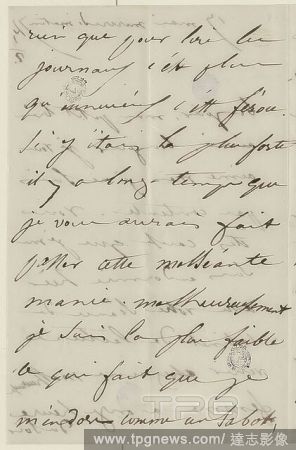 rien que pour lire les
journaux c'est plus
qu'ennuyeux c'est féroce.
Si j'étais la plus forte
il y a longtemps que
je vous aurais fait
passer cette malséante
manie. malheureusement
je suis la plus faible
ce qui fait que je
m'endors comme un sabot,
TPG
www.tpgnews.com / 達志影像